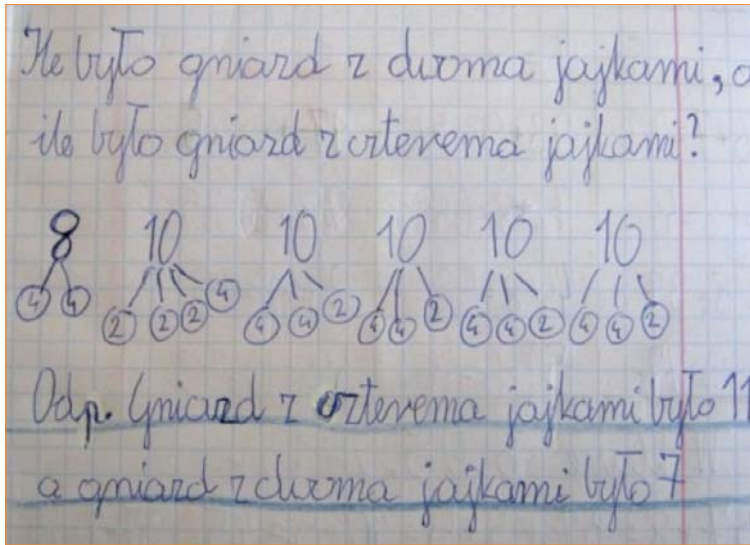 Ile było gniazd z dwoma jajkami, a
ile było gniazd z czterema jajkami?
8 10 10 10 10 10
4 4 2 2 2 4 4 4 2 4 4 2 4 4 2 4 4 2
Odp. Gniazd z czterema jajkami było 11
a gniazd z dwoma jajkami było 7